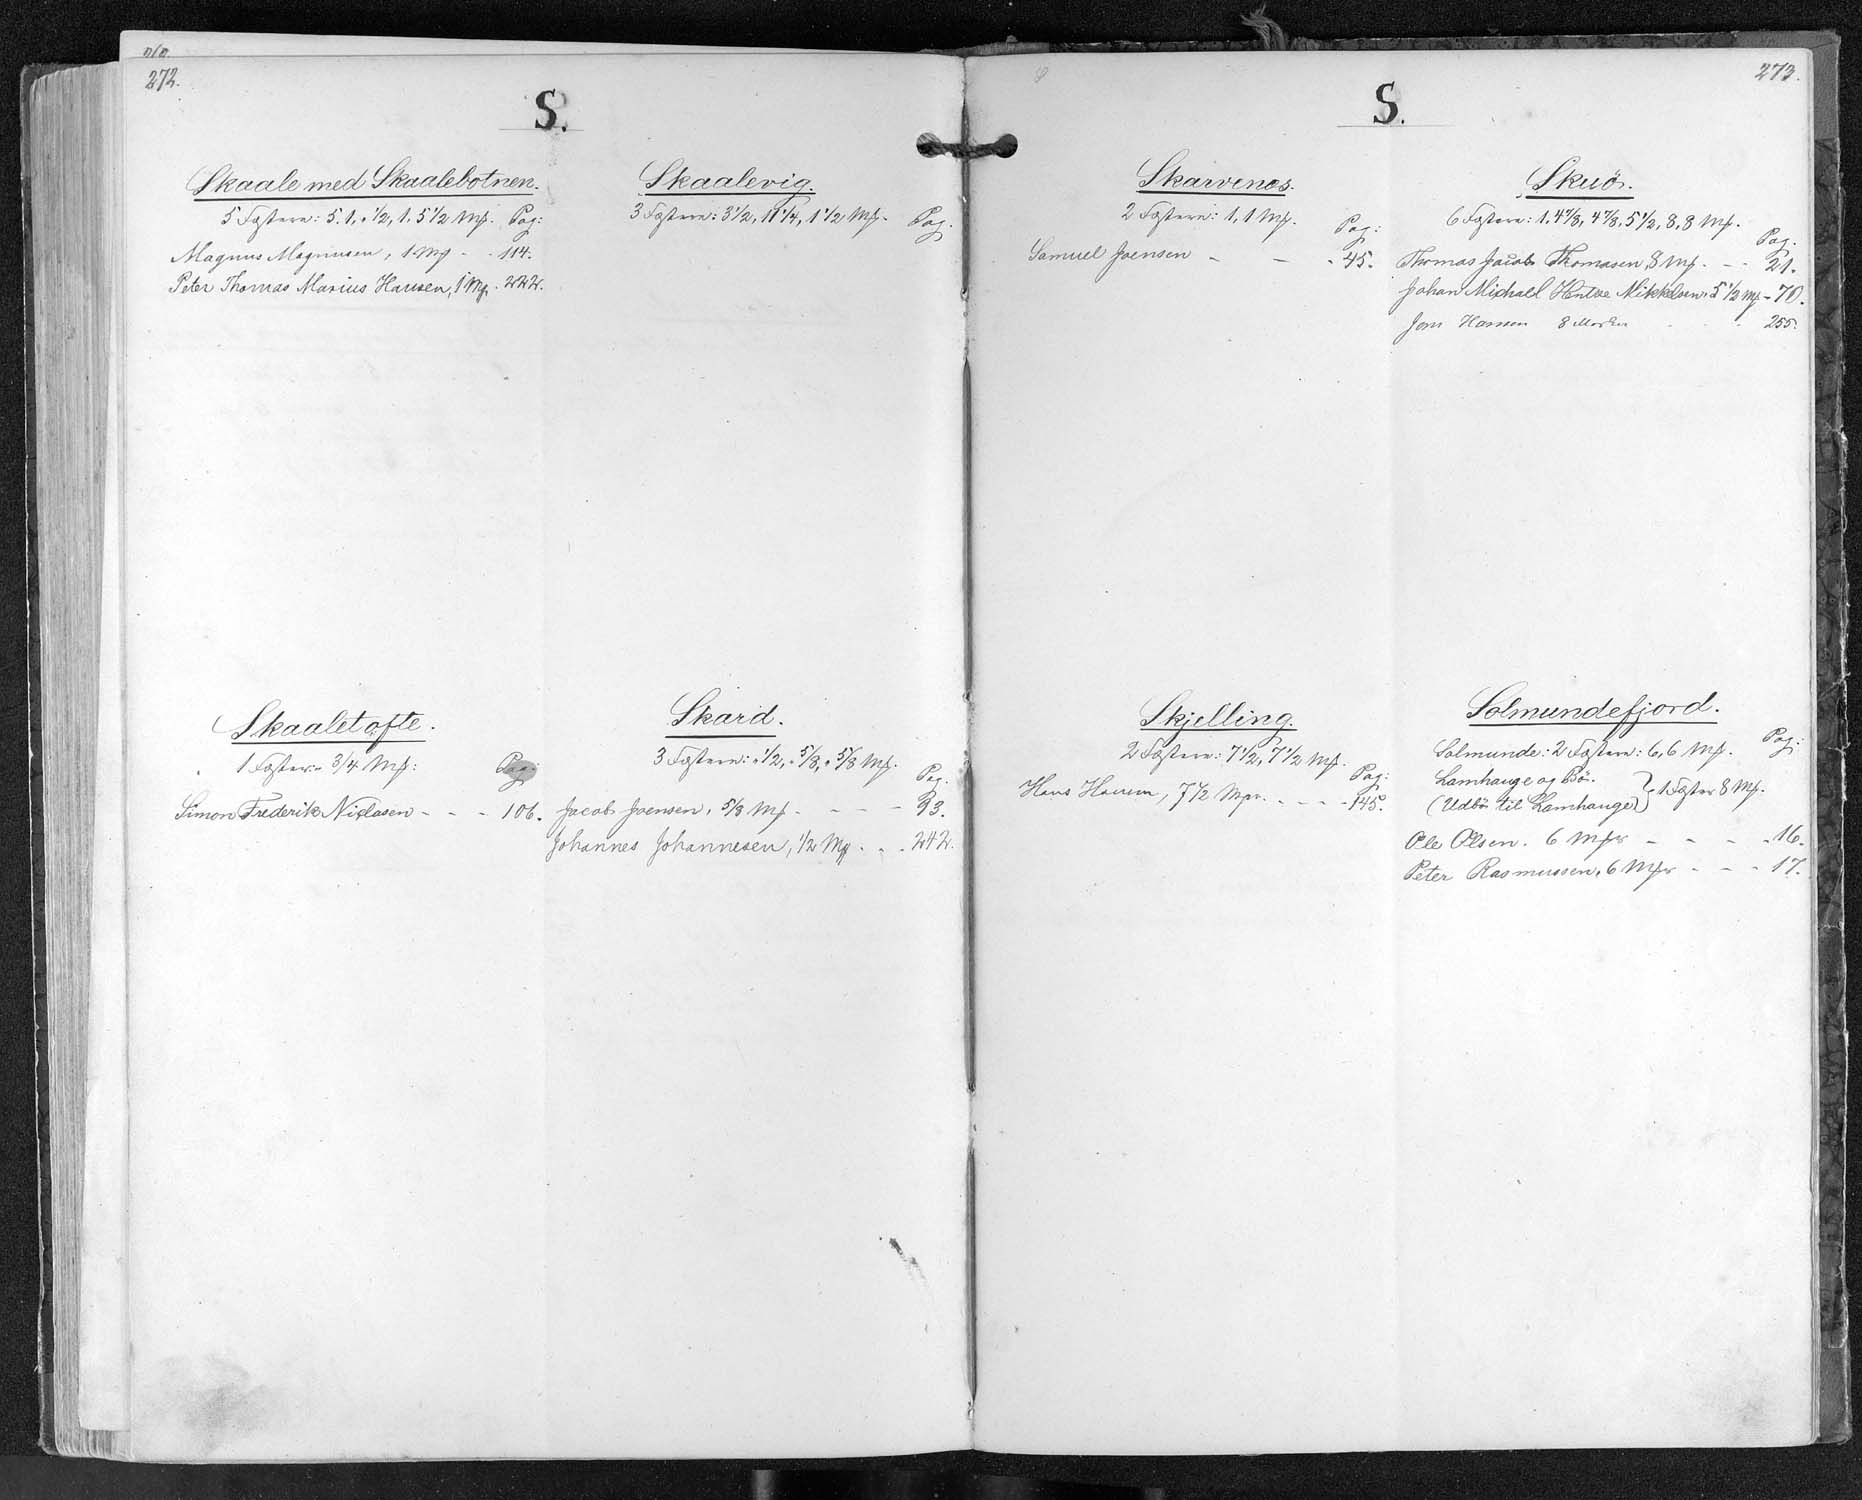 272.
S.
Skaale med Skaalebotnen.
5 Fæstere: 5. 1, " 1/2, 1. 5 1/2 Mk. Pag:
Magnus Magnusen, 1 Mk - - 114.
Peter Thomas Marius Hansen, 1 Mk. 222.
Skaalevig.
3 Fæstere: 3 1/2, 11 1/4, 1 1/2 Mk. Pag.
Skaaletofte.
1 Fæster: " 3/4 Mk: Pag:
Simon Frederik Niclasen - - - 106.
Skard.
3 Fæstere: " 1/2, " 5/8, " 5/8 Mk. Pag.
Jacob Joensen, 5/8 Mk. - - - 93.
Johannes Johannesen, 1/2 Mk - - . 242.
273.
S.
Skarvenæs.
2 Fæstere: 1, 1 Mk. Pag:
Samuel Joensen - - - 45.
Skuö.
6 Fæstere: 1. 4 7/8, 4 7/8, 5 1/2, 8, 8 Mk. Pag.
Thomas Jacob Thomasen, 8 Mk. - - 21.
Johan Michael Mikkelsen 5 1/2 Mk - 70.
Hansen 8 Marker 255.
Skjelling.
2 Fæstere: 7 1/2, 7 1/2 Mk. Pag:
Hans Hansen, 7 1/2 Mkr. - - - 145.
Solmundefjord.
Solmunde: 2 Fæstere: 6, 6 Mk. Pag:
Lamhauge og Bö.
(Udbö til Lamhauge) } 1 Fæster 8 Mk.
Ole Olsen. 6 Mkr - - - - 16.
Peter Rasmussen, 6 Mkr - - - 17.